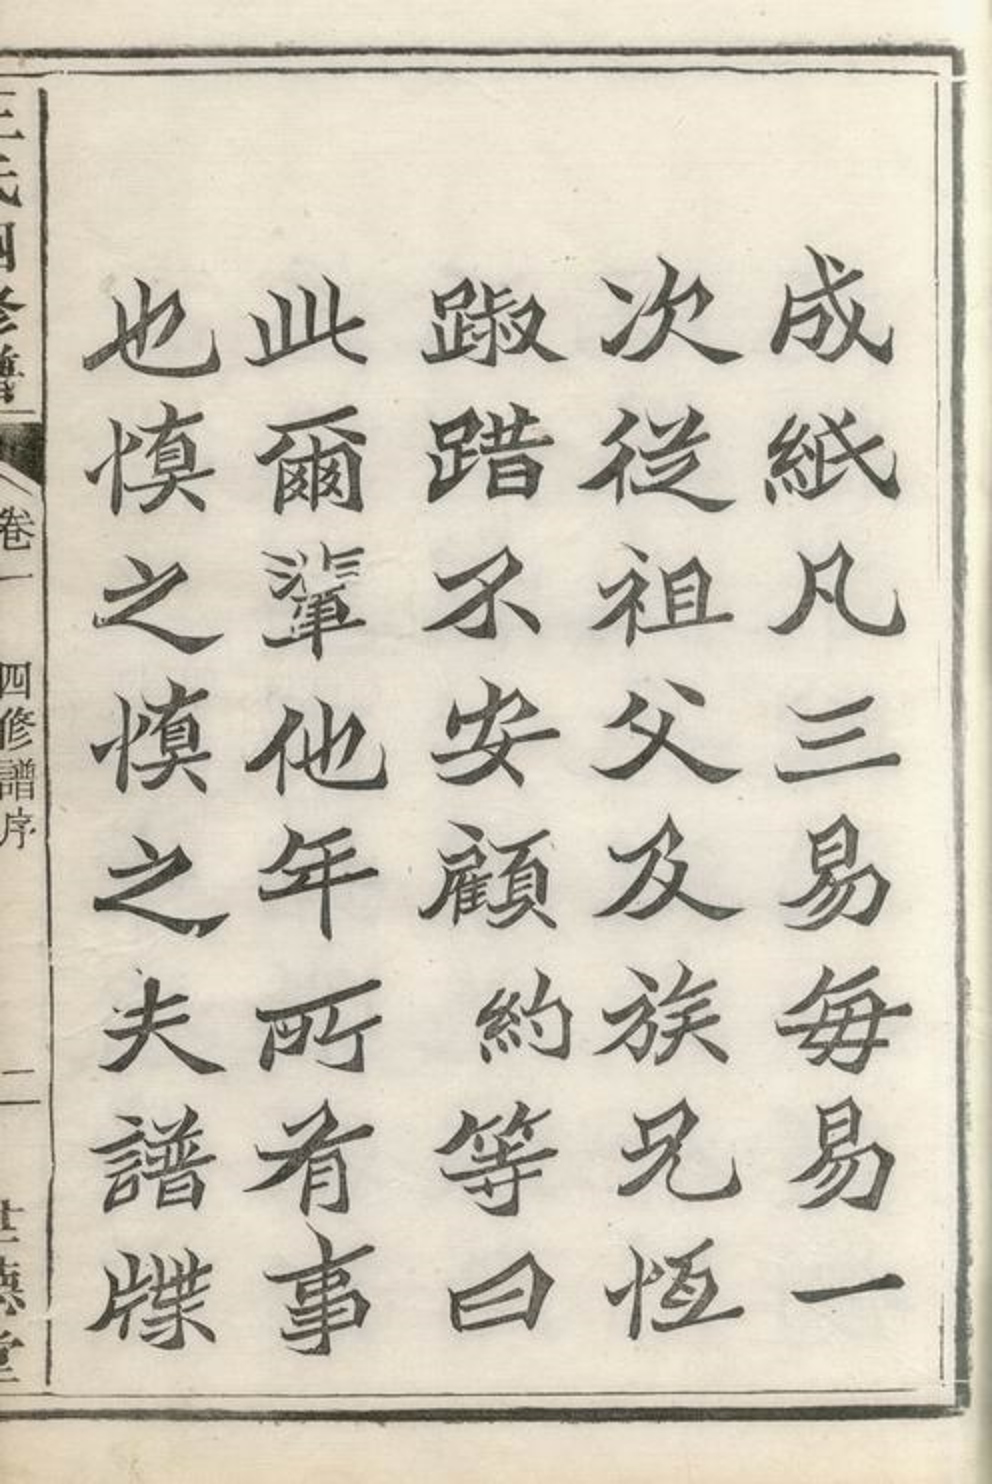 成紙凡三易每易一
次從祖父及族兄恆
踧踖不安顧約等曰
此爾輩他年所有事
也慎之慎之夫譜牒
王氏四修譜
卷一
四修譜序
二
世德堂